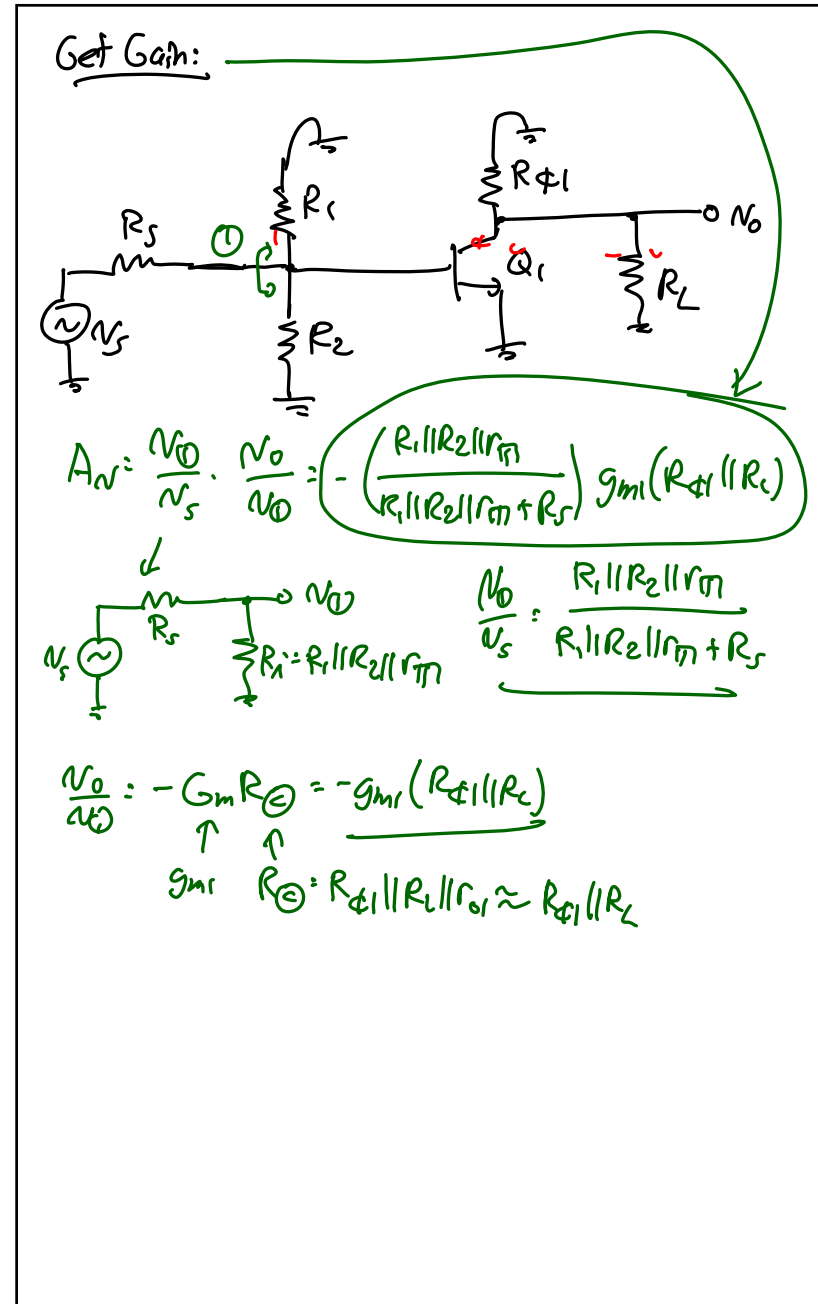 Get Gain:
R1
RC1
vo
RS
①
Q1
RL
vs
R2
Av = v①/vs · vo/v① = -(R1||R2||rπ / R1||R2||rπ + Rs) gm1(RC1||RL)
v①
Rs
vs
Ri = R1||R2||rπ
v①/vs = R1||R2||rπ / R1||R2||rπ + Rs
vo/v① = -Gm R© = -gm1(RC1||RL)
gm1 R© = RC1||RL||ro1 ≈ RC1||RL